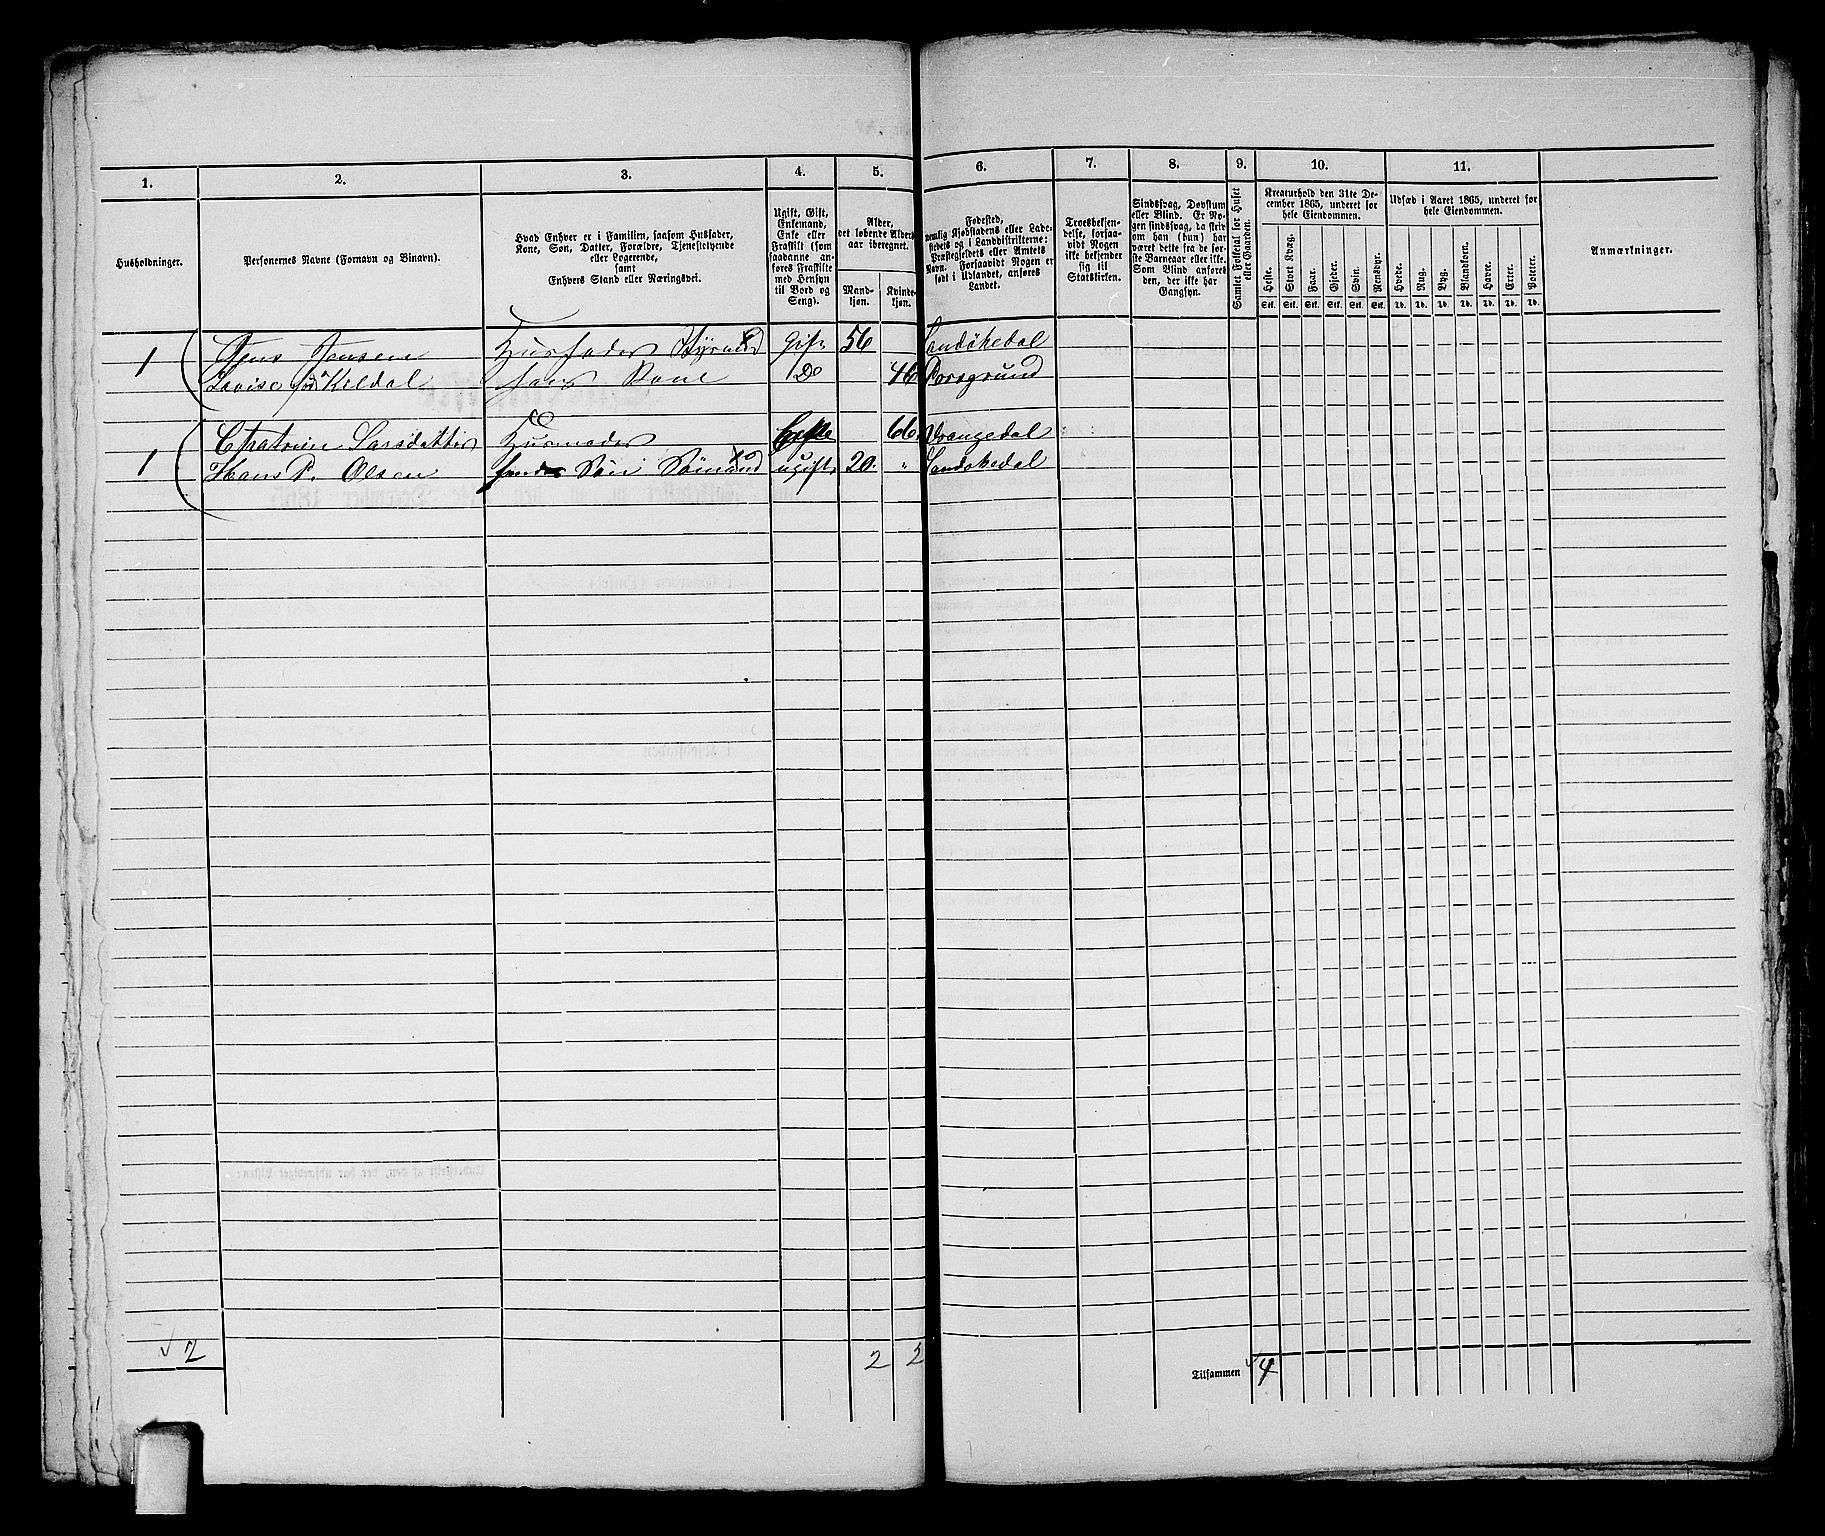 1. 2. 3. 4. 5. 6. 7. 8. 9. 10. 11.
Husholdninger.
Personernes Navne (Fornavn og Binavn).
Hvad Enhver er i Familien, saasom Husfader,
Kone, Søn, Datter, Forældre, Tjenestetyende
eller Logerende,
samt
Enhvers Stand eller Næringsvei.
Ugift, Gift,
Enkemand,
Enke eller
Fraskilt (som
saadanne an-
føres Fraskilte
med Hensyn
til Bord og
Seng).
Alder,
det løbende Alders-
aar iberegnet.
Mand-
kjøn.
Kvinde-
kjøn.
Fødested,
nemlig Kjøbstadens eller Lade-
stedets og i Landdistrikterne:
Præstegjeldets eller Amtets
Navn. Forsaavidt Nogen er
født i Udlandet, anføres
Landet.
Troesbekjen-
delse, forsaa-
vidt Nogen
ikke bekjender
sig til
Statskirken.
Sindssvag, Døvstum
eller Blind. Er No-
gen sindssvag, da skriv
om han (hun) har
været dette fra de før-
ste Barneaar eller ikke.
Som Blind anføres
den, der ikke har
Gangsyn.
Samlet Folketal for Huset
eller Gaarden.
Kreaturhold den 31te De-
cember 1865, underet for
hele Eiendommen.
Heste. Stort Kvæg. Faar. Gjeder. Sviin. Rensdyr.
Stk. Stk. Stk. Stk. Stk. Stk.
Udsæd i Aaret 1865, underet for
hele Eiendommen.
Hvede. Rug. Byg. Blandkorn. Havre. Erter. Poteter.
Td. Td. Td. Td. Td. Td. Td.
Anmærkninger.
1 Jens Jensen Husfader Styrmand Gift 56 Sandøkedal
Lovise fød Kildal hans Kone Do 46 Porsgrund
Chatrine Larsdatter Husmoder Gifte 66 Drangedal
1 Hans P. Olsen Søn Sømand ugift 20. " Sandøkedal
√ 2 2 2 Tilsammen √4